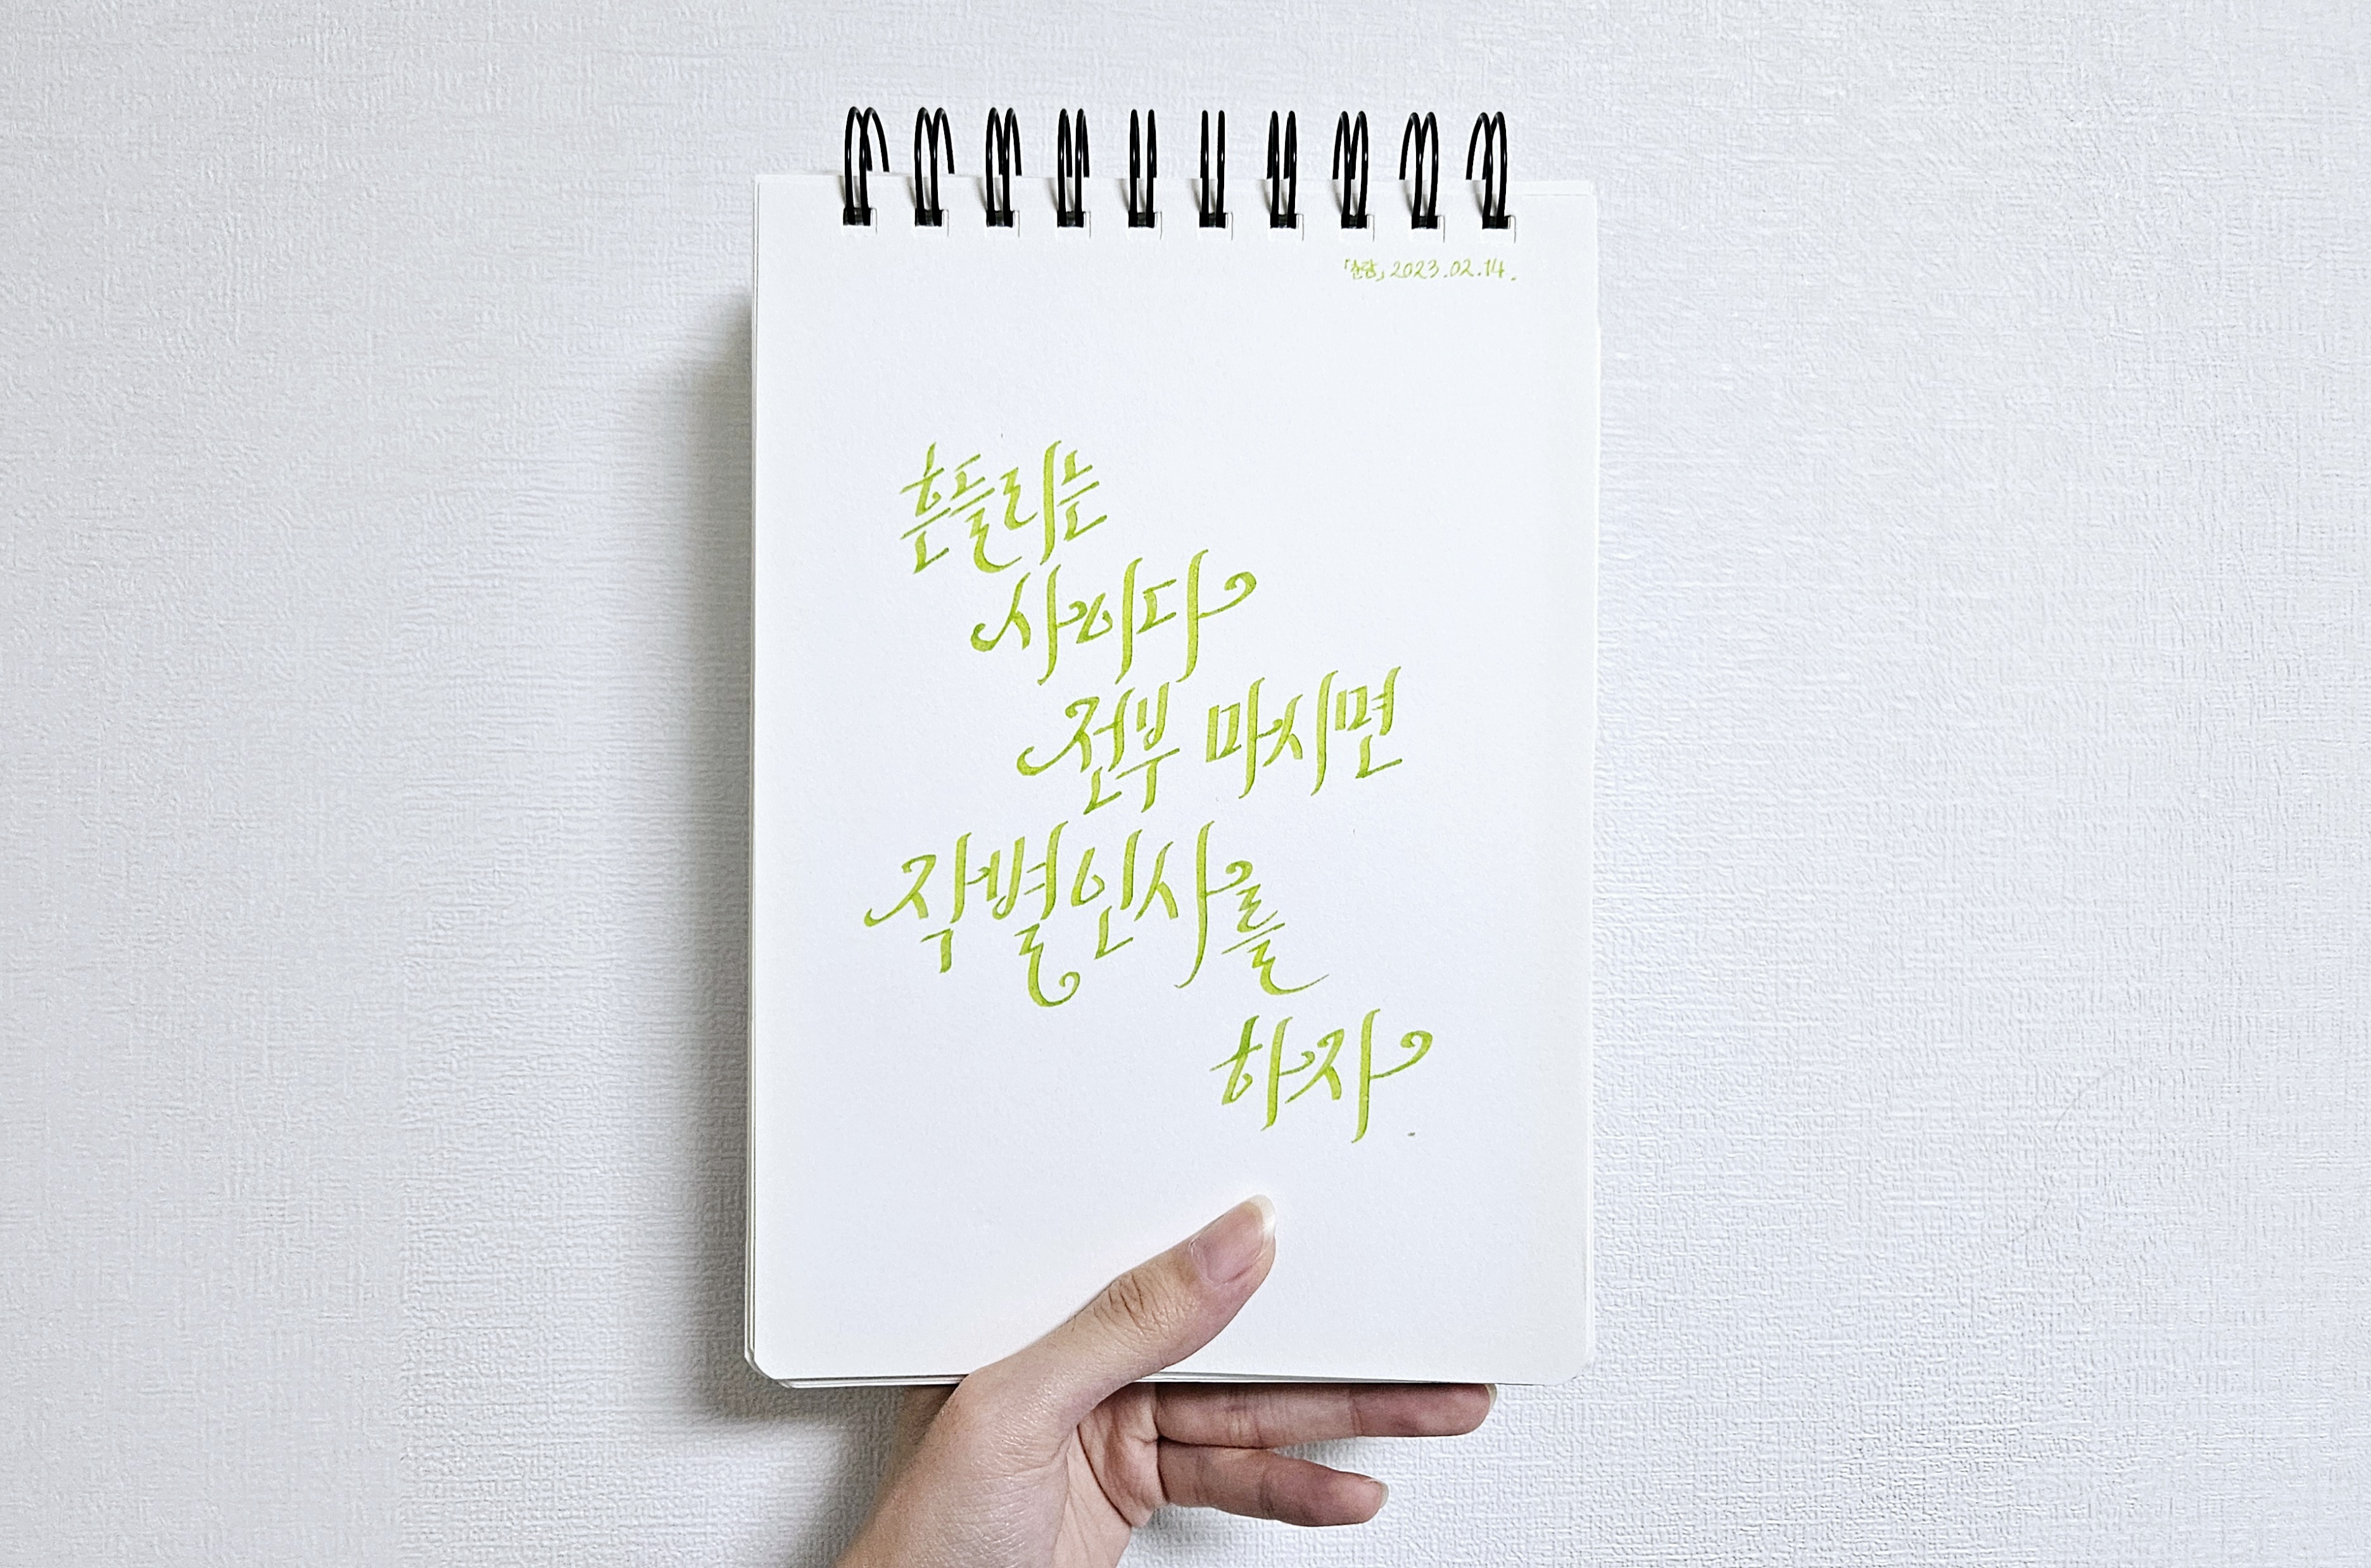 2023.02.14.
흔들리는
사이다
전부 마시면
작별인사를
하자.